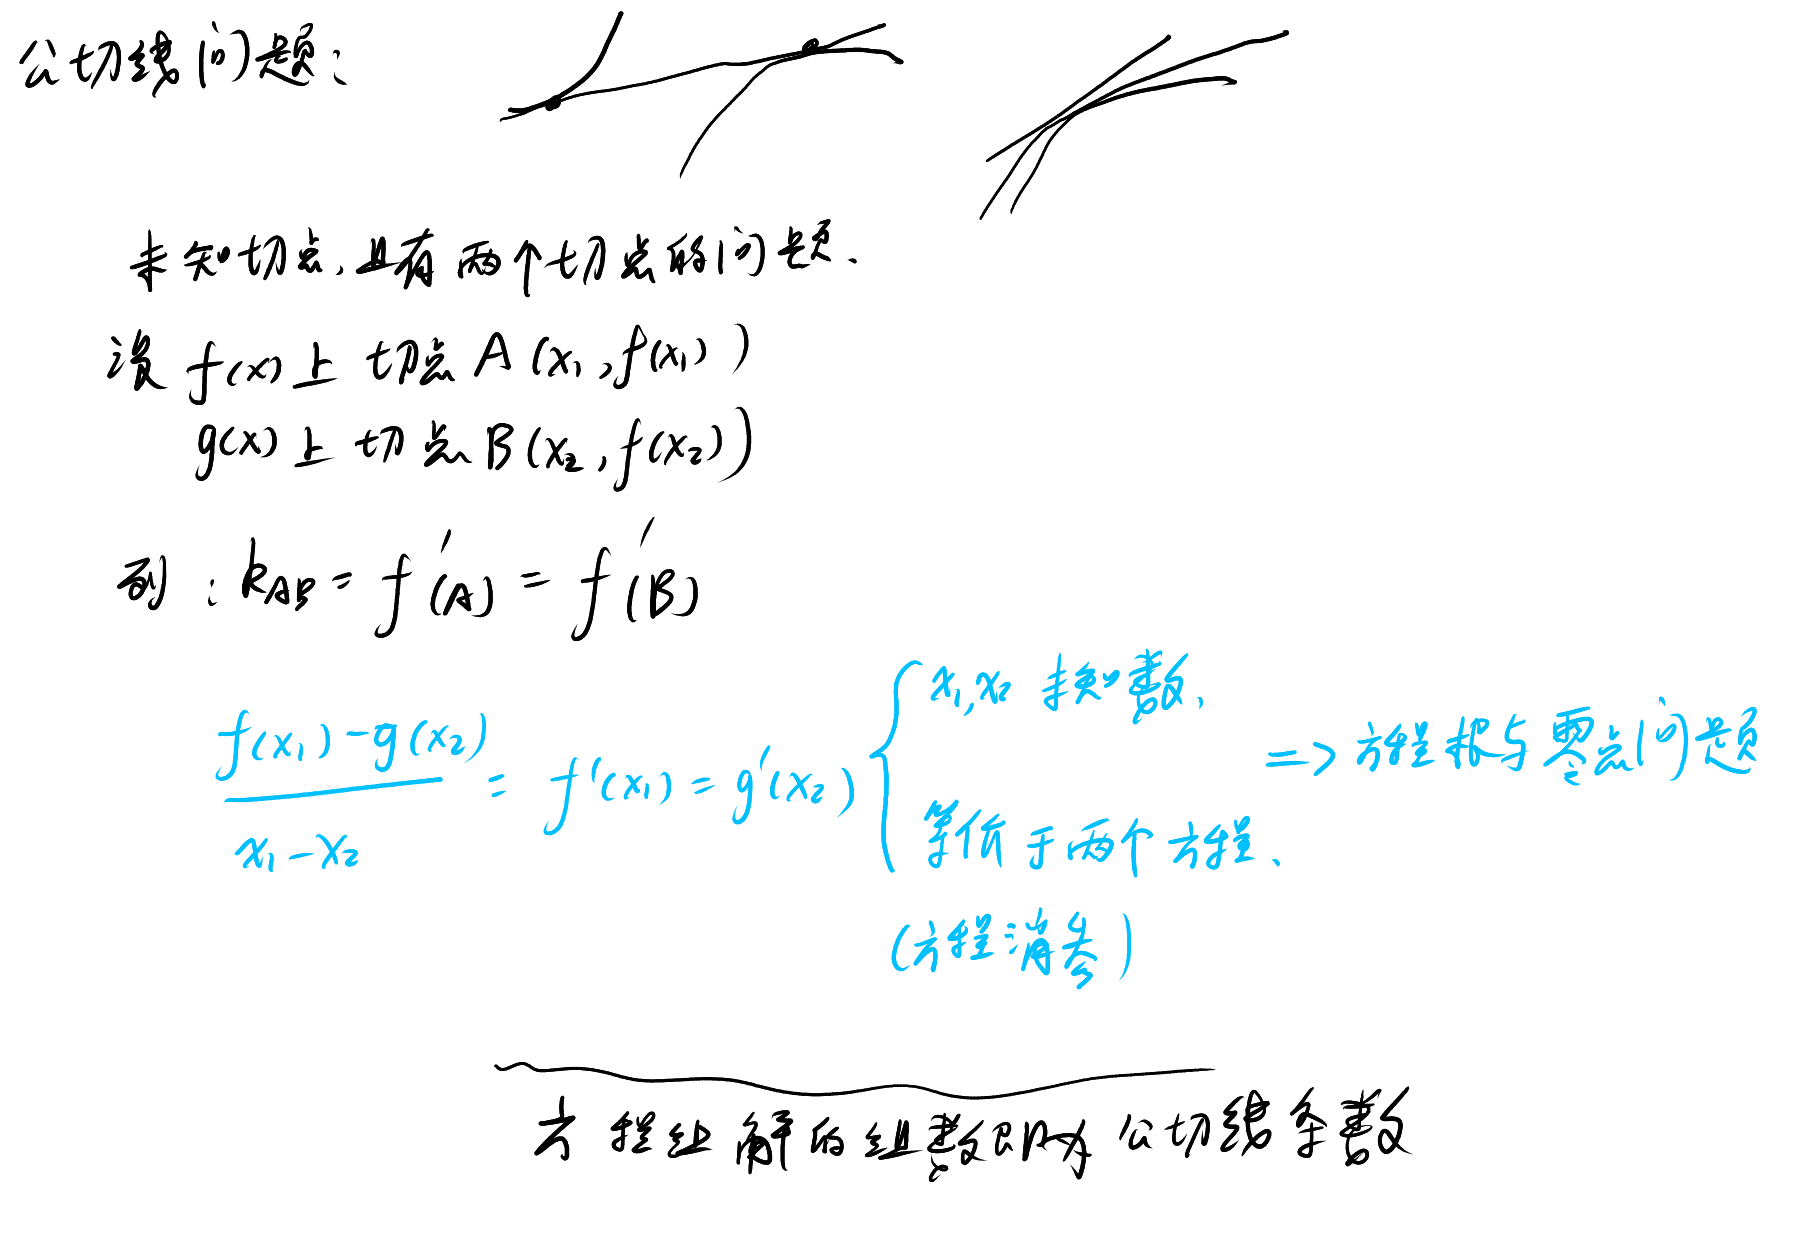 公切线问题：
未知切点，且有两个切点的问题．
设 f(x)上 切点 A(x₁,f(x₁))
g(x)上 切点 B(x₂,f(x₂))
列：k_AB = f′(A) = f′(B)
(f(x₁)-g(x₂))/(x₁-x₂) = f′(x₁) = g′(x₂) { x₁,x₂ 未知数，
等价于两个方程、
=> 方程根与零点问题
(方程消参)
方程组解的组数即为公切线条数